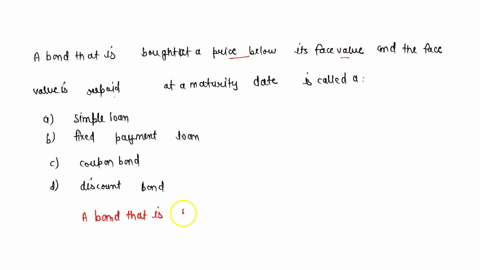 A bond that is bought at a price below its face value and the face
value is repaid at a maturity date is called a:
a) simple loan
b) fixed payment loan
c) coupon bond
d) discount bond
A bond that is